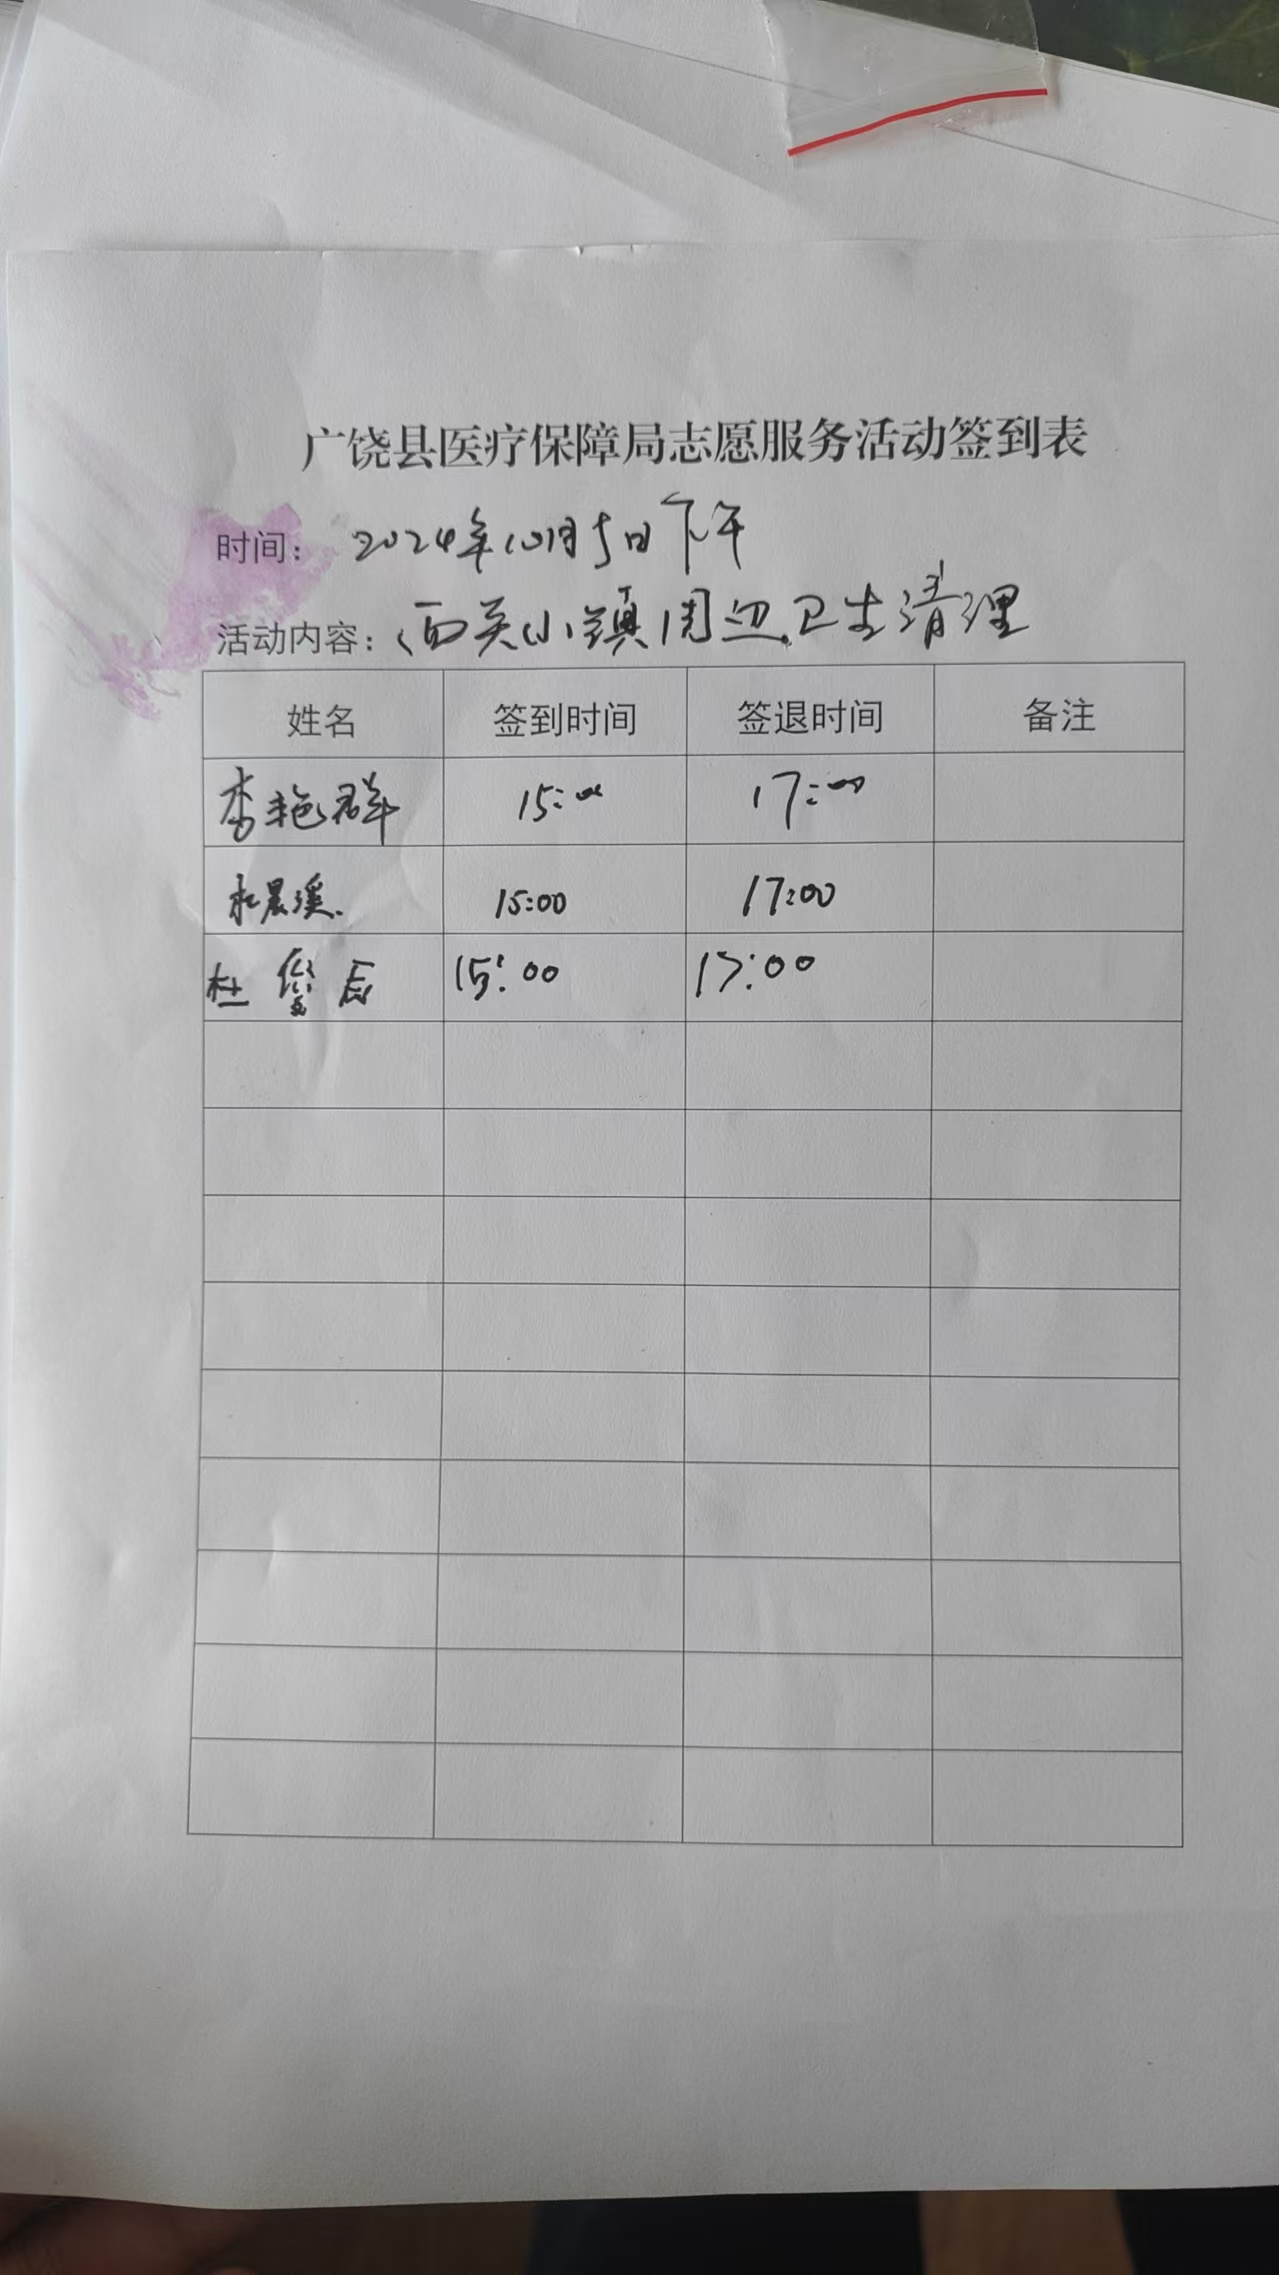 广饶县医疗保障局志愿服务活动签到表
时间：2024年10月5日下午
活动内容：西关小镇周边卫生清理
姓名 签到时间 签退时间 备注
李艳群 15:00 17:00
杜晨溪 15:00 17:00
杜 15:00 17:00